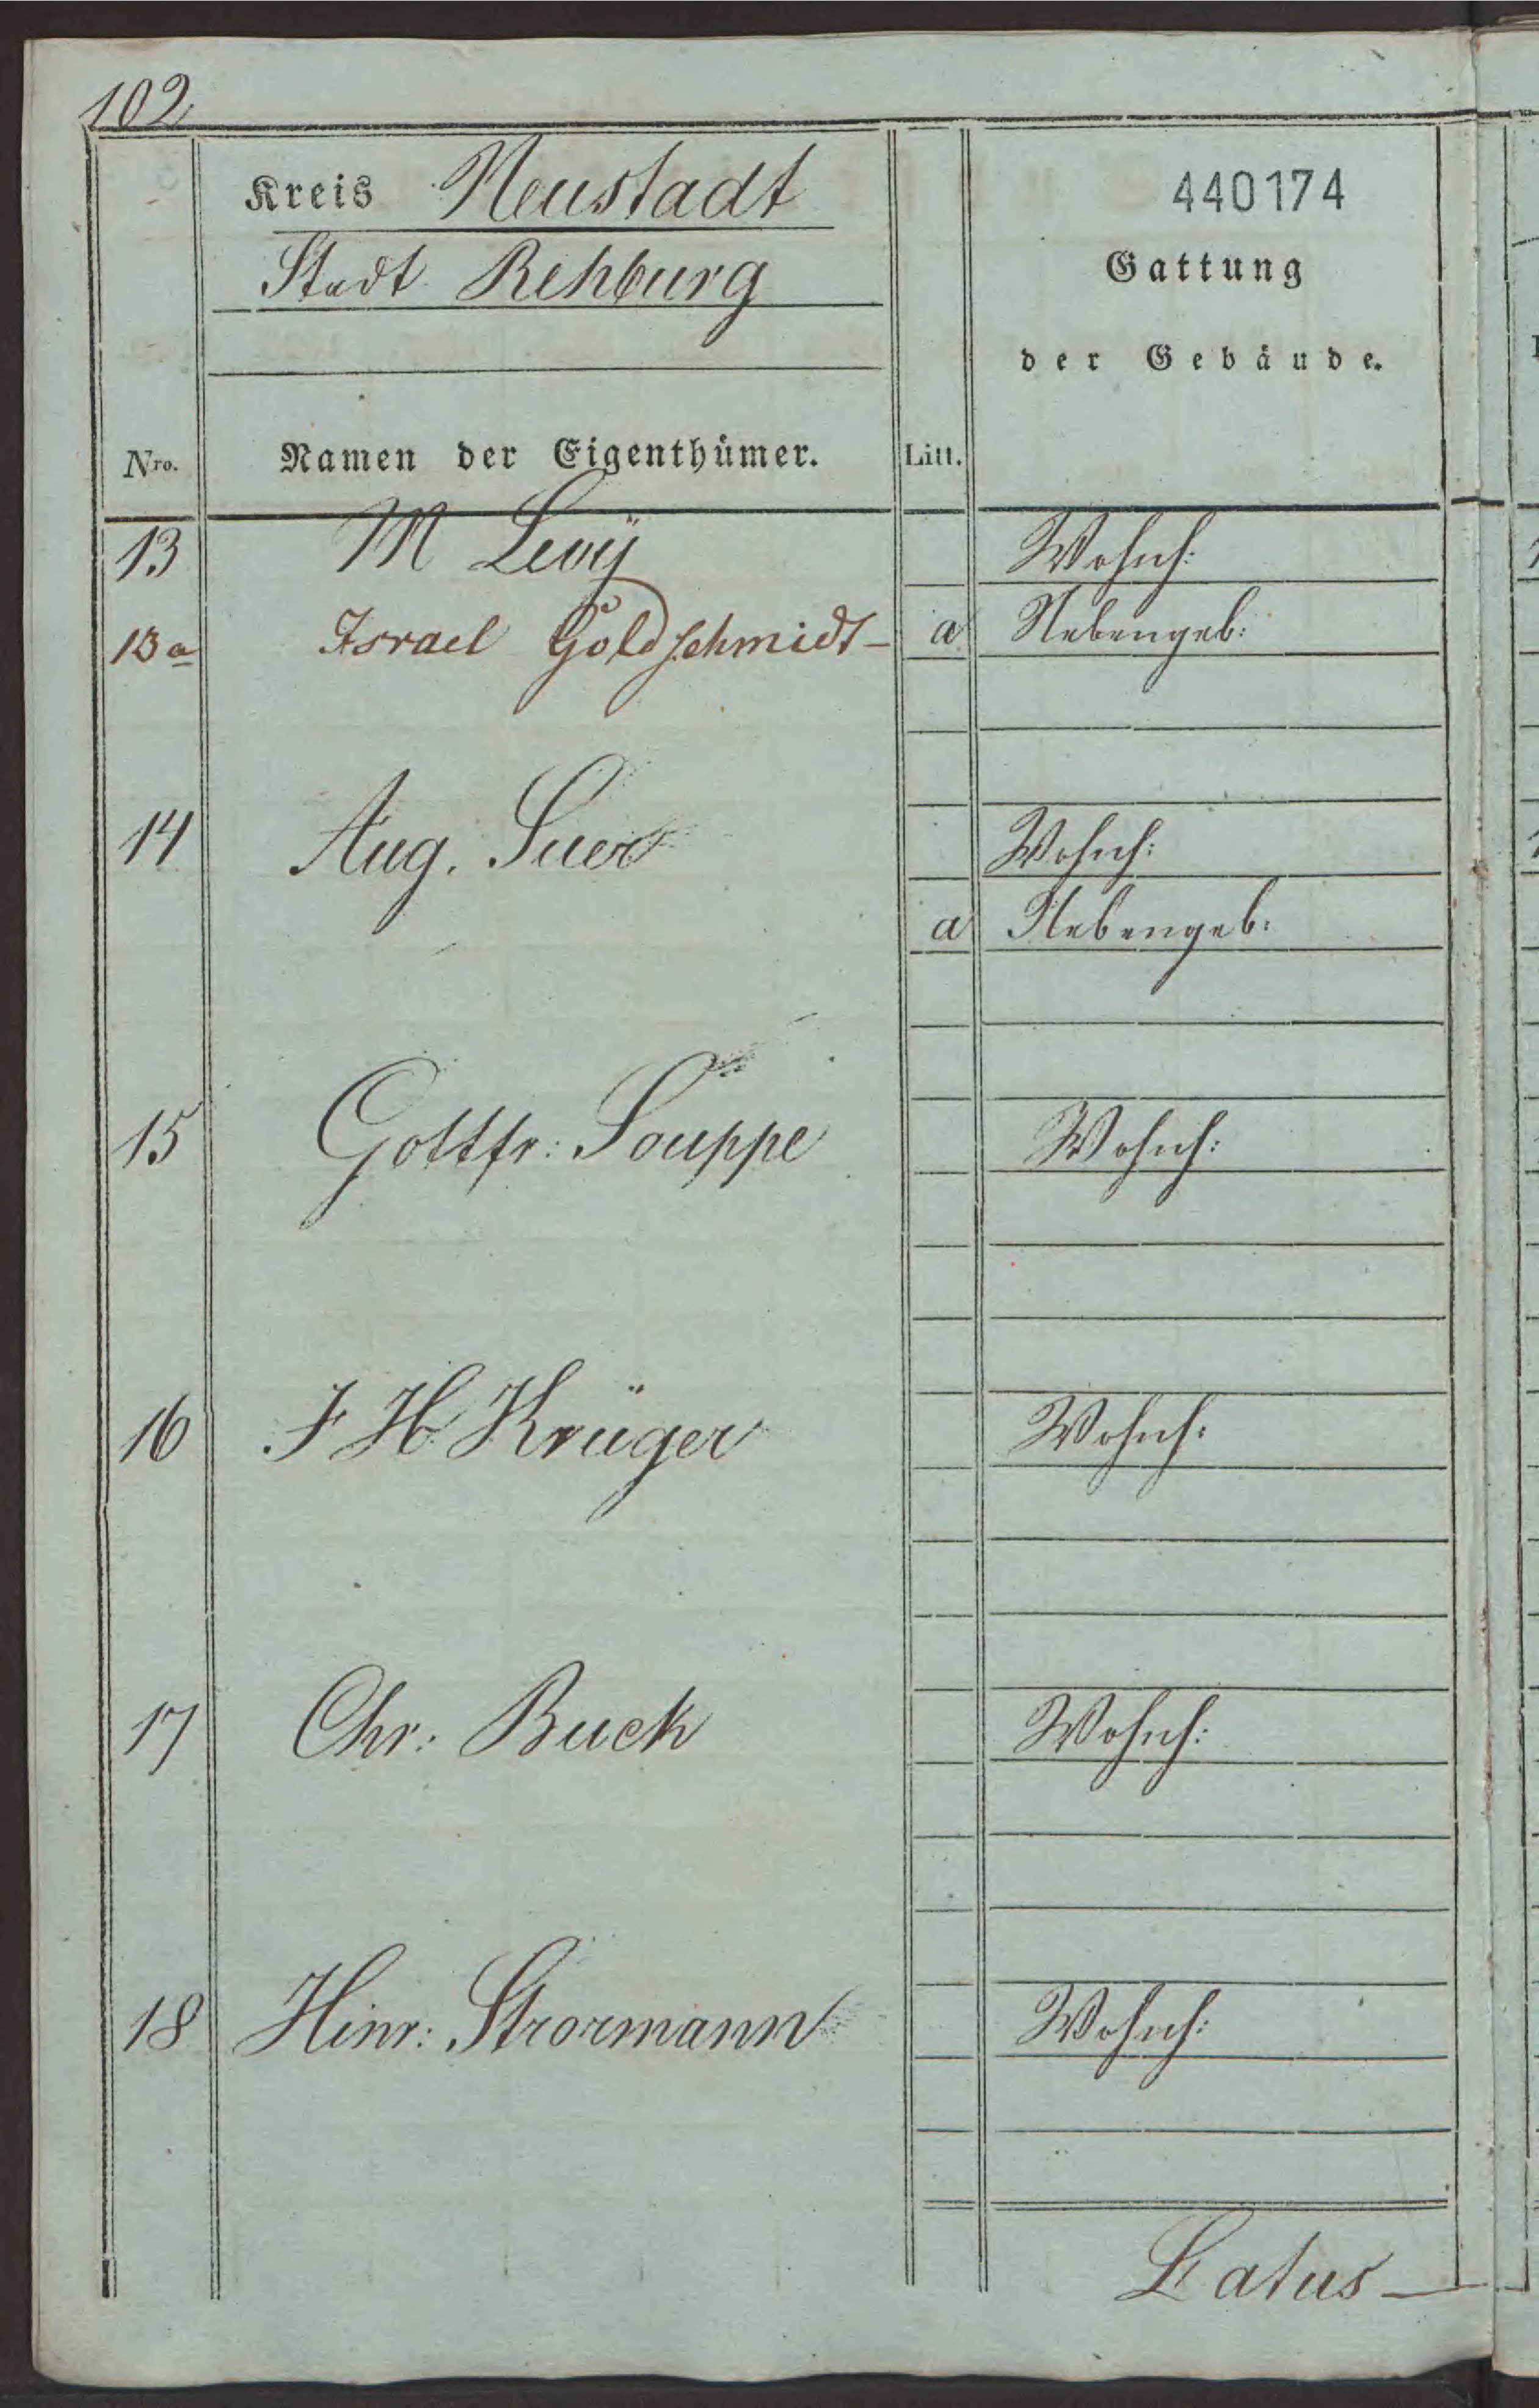 102
Kreis Neustadt
440174
Stadt Rehburg
Gattung
der Gebäude.
Nro. Namen der Eigenthümer. Litt.
13 M Levÿ Wohnh:
13a Israel Goldschmidt a Nebengeb:
14 Aug. Suer Wohnh:
a Nebengeb:
15 Gottfr: Souppe Wohnh:
16 F H Krüger Wohnh:
17 Chr: Buck Wohnh:
18 Hinr: Strormann Wohnh:
Latus